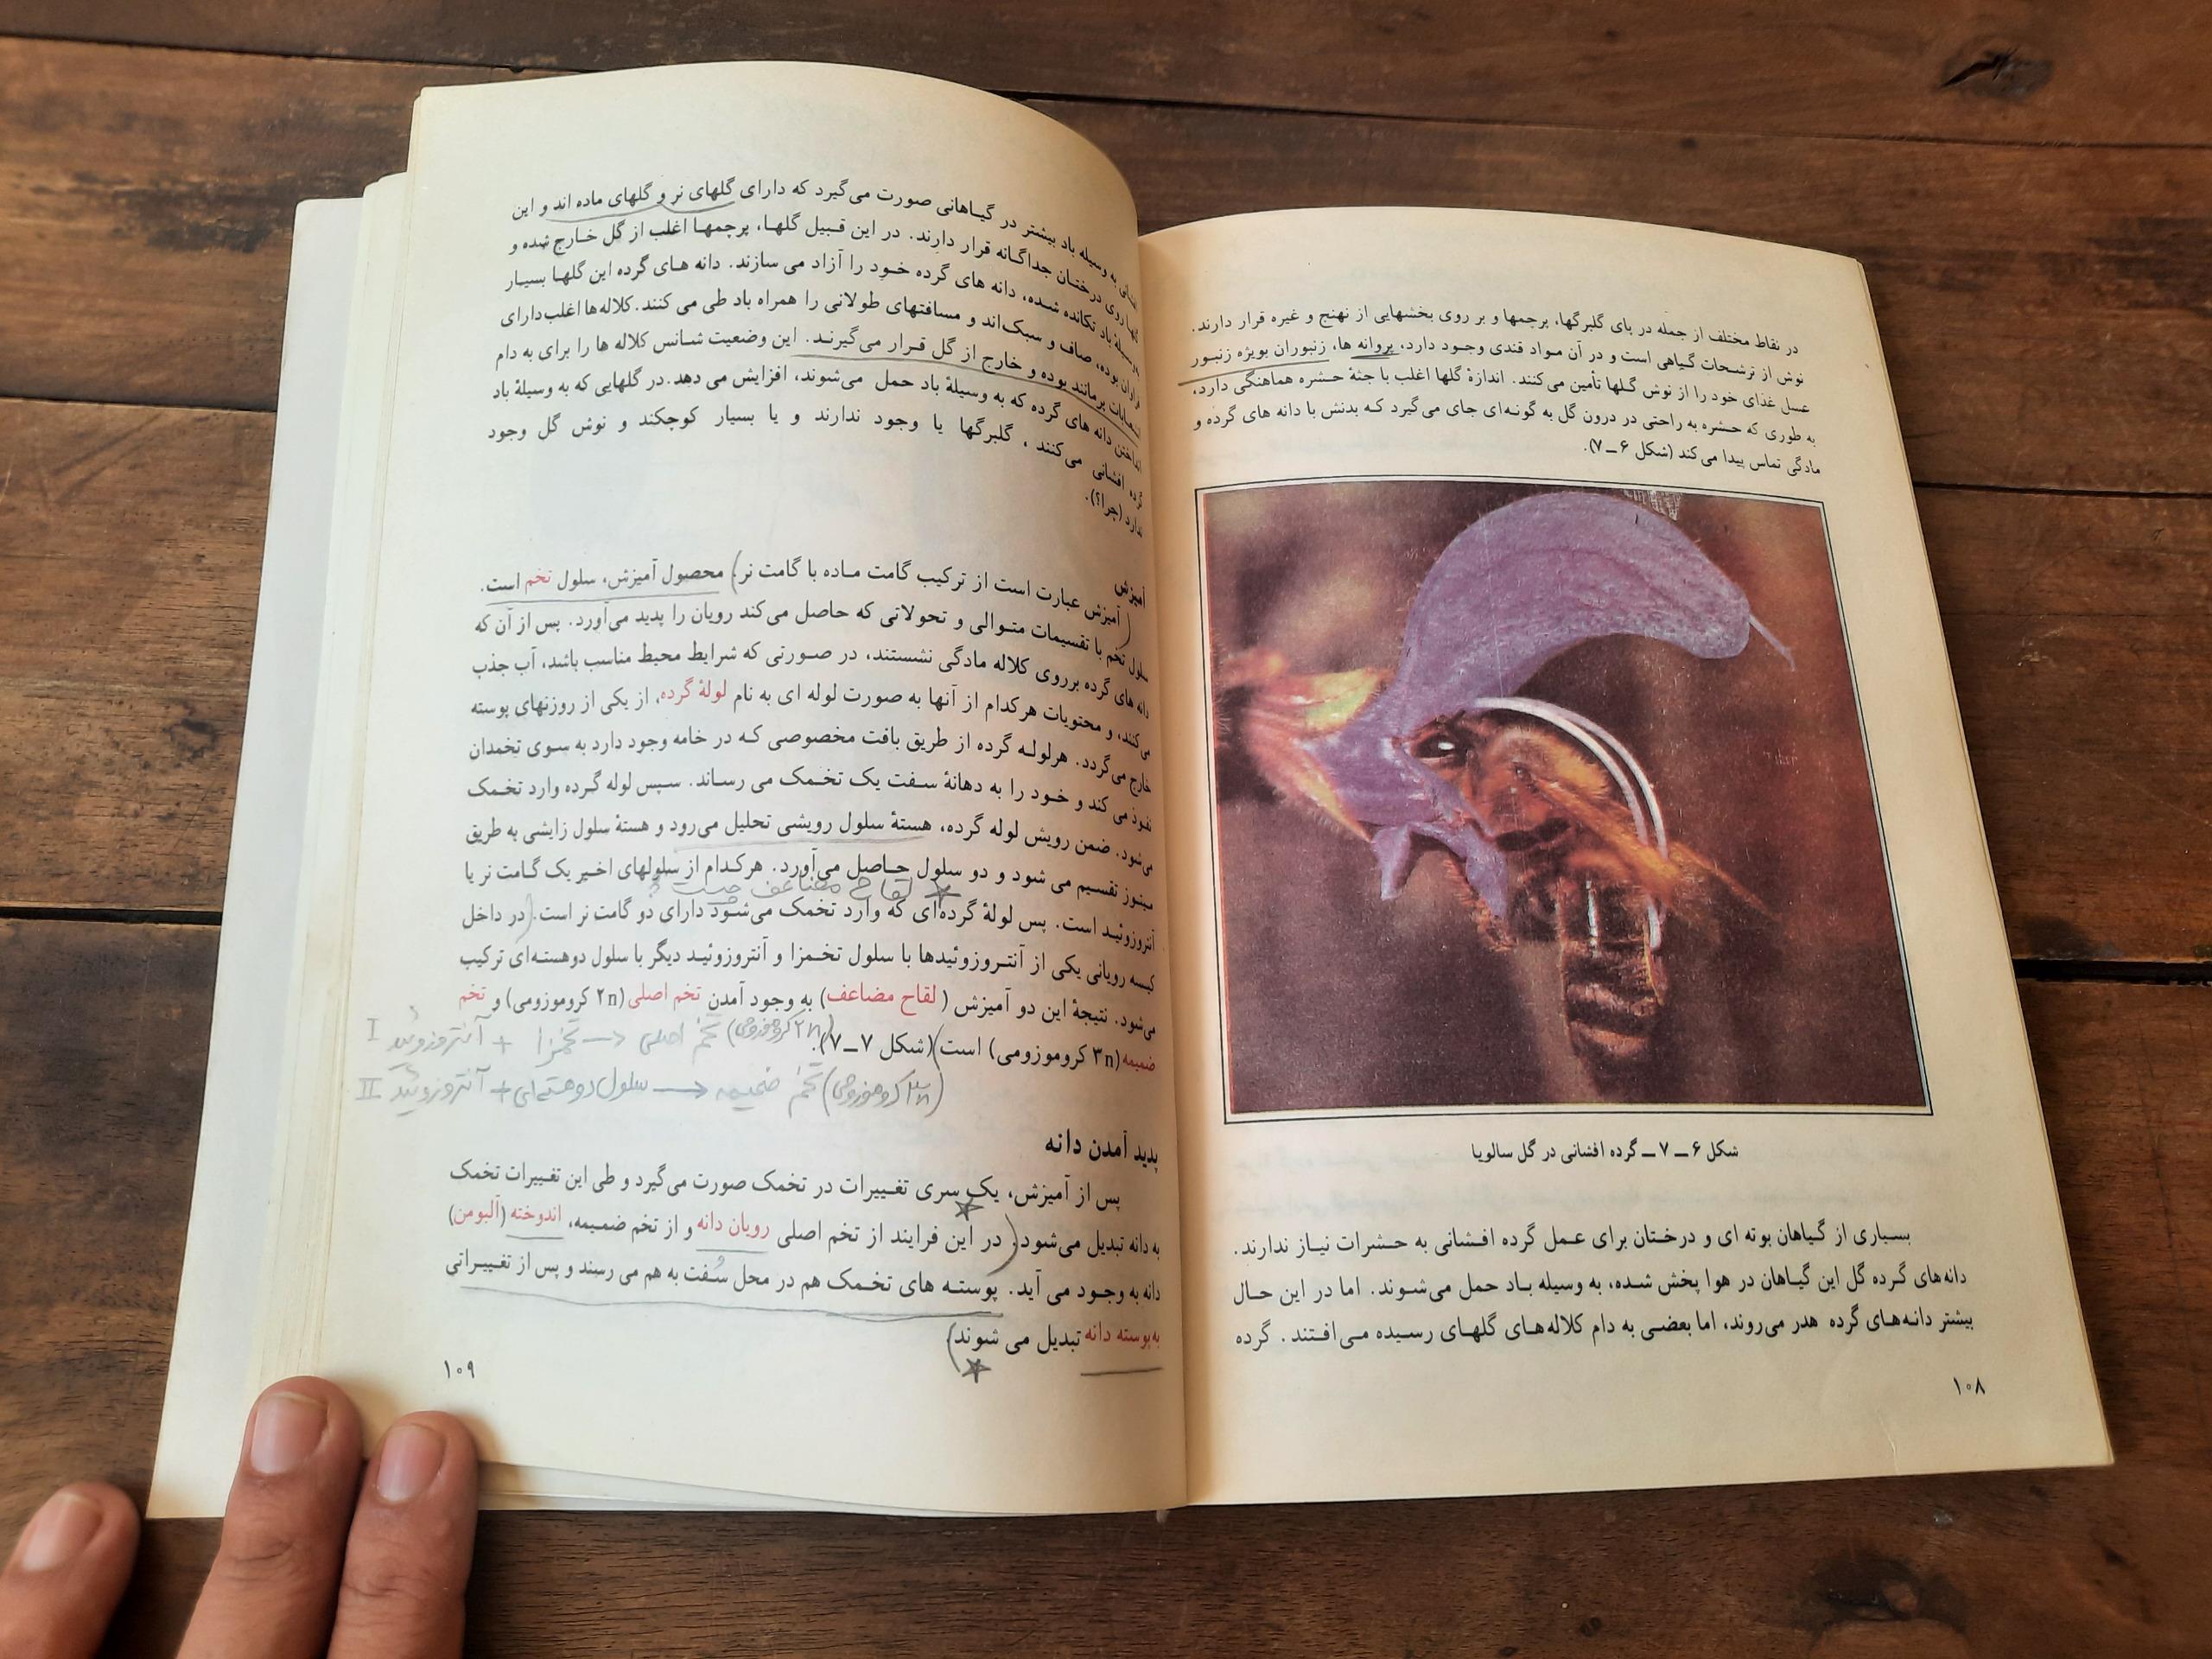 در نقاط مختلف از جمله در پای گلبرگها، پرچمها و بر روی بخشهایی از نهنج و غیره قرار دارند.
نوش از ترشحات گیاهی است و در آن مواد قندی وجود دارد، پروانه ها، زنبوران بویژه زنبور
عسل غذای خود را از نوش گلها تأمین می‌کنند. اندازهٔ گلها اغلب با جثهٔ حشره هماهنگی دارد،
به طوری که حشره به راحتی در درون گل به گونه‌ای جای می‌گیرد که بدنش با دانه های گرده و
مادگی تماس پیدا می‌کند (شکل ۶ــ۷).
شکل ۶ــ۷ــ گرده افشانی در گل سالویا
بسیاری از گیاهان بوته ای و درختان برای عمل گرده افشانی به حشرات نیاز ندارند.
دانه‌های گرده گل این گیاهان در هوا پخش شده، به وسیله باد حمل می‌شوند. اما در این حال
بیشتر دانه‌های گرده هدر می‌روند، اما بعضی به دام کلاله‌های گلهای رسیده می‌افتند. گرده
۱۰۸
به وسیله باد بیشتر در گیاهانی صورت می‌گیرد که دارای گلهای نر و گلهای ماده اند و این
روی درختان جداگانه قرار دارند. در این قبیل گلها، پرچمها اغلب از گل خارج شده و
باد تکانده شده، دانه های گرده خود را آزاد می سازند. دانه های گرده این گلها بسیار
بوده، صاف و سبک‌اند و مسافتهای طولانی را همراه باد طی می کنند. کلاله‌ها اغلب دارای
پرمانند بوده و خارج از گل قرار می‌گیرند. این وضعیت شانس کلاله ها را برای به دام
انداختن دانه های گرده که به وسیلهٔ باد حمل می‌شوند، افزایش می دهد. در گلهایی که به وسیلهٔ باد
گرده افشانی می‌کنند، گلبرگها یا وجود ندارند و یا بسیار کوچکند و نوش گل وجود
ندارد (چرا؟).
آمیزش
آمیزش عبارت است از ترکیب گامت ماده با گامت نر) محصول آمیزش، سلول تخم است.
سلول تخم با تقسیمات متوالی و تحولاتی که حاصل می‌کند رویان را پدید می‌آورد. پس از آن که
دانه های گرده برروی کلاله مادگی نشستند، در صورتی که شرایط محیط مناسب باشد، آب جذب
می‌کنند، و محتویات هرکدام از آنها به صورت لوله ای به نام لولهٔ گرده، از یکی از روزنهای پوسته
خارج می‌گردد. هرلوله گرده از طریق بافت مخصوصی که در خامه وجود دارد به سوی تخمدان
نفوذ می کند و خود را به دهانهٔ سفت یک تخمک می رساند. سپس لوله گرده وارد تخمک
می‌شود. ضمن رویش لوله گرده، هستهٔ سلول رویشی تحلیل می‌رود و هستهٔ سلول زایشی به طریق
میتوز تقسیم می شود و دو سلول حاصل می‌آورد. هرکدام از سلولهای اخیر یک گامت نر یا
لقاح مضاعف چیست؟
آنتروزوئید است. پس لولهٔ گرده‌ای که وارد تخمک می‌شود دارای دو گامت نر است. (در داخل
کیسه رویانی یکی از آنتروزوئیدها با سلول تخمزا و آنتروزوئید دیگر با سلول دوهسته‌ای ترکیب
می‌شود. نتیجهٔ این دو آمیزش (لقاح مضاعف) به وجود آمدن تخم اصلی (۲n کروموزومی) و تخم
ضمیمه (۳n کروموزومی) است) (شکل ۷ــ۷).
آنتروزوئید I + تخمزا → تخم اصلی (۲n کروموزومی)
آنتروزوئید II + سلول دوهسته‌ای → تخم ضمیمه (۳n کروموزومی)
پدید آمدن دانه
پس از آمیزش، یک سری تغییرات در تخمک صورت می‌گیرد و طی این تغییرات تخمک
به دانه تبدیل می‌شود. (در این فرایند از تخم اصلی رویان دانه و از تخم ضمیمه، اندوخته (آلبومن)
دانه به وجود می آید. پوسته های تخمک هم در محل سُفت به هم می رسند و پس از تغییراتی
به پوسته دانه تبدیل می شوند)
۱۰۹